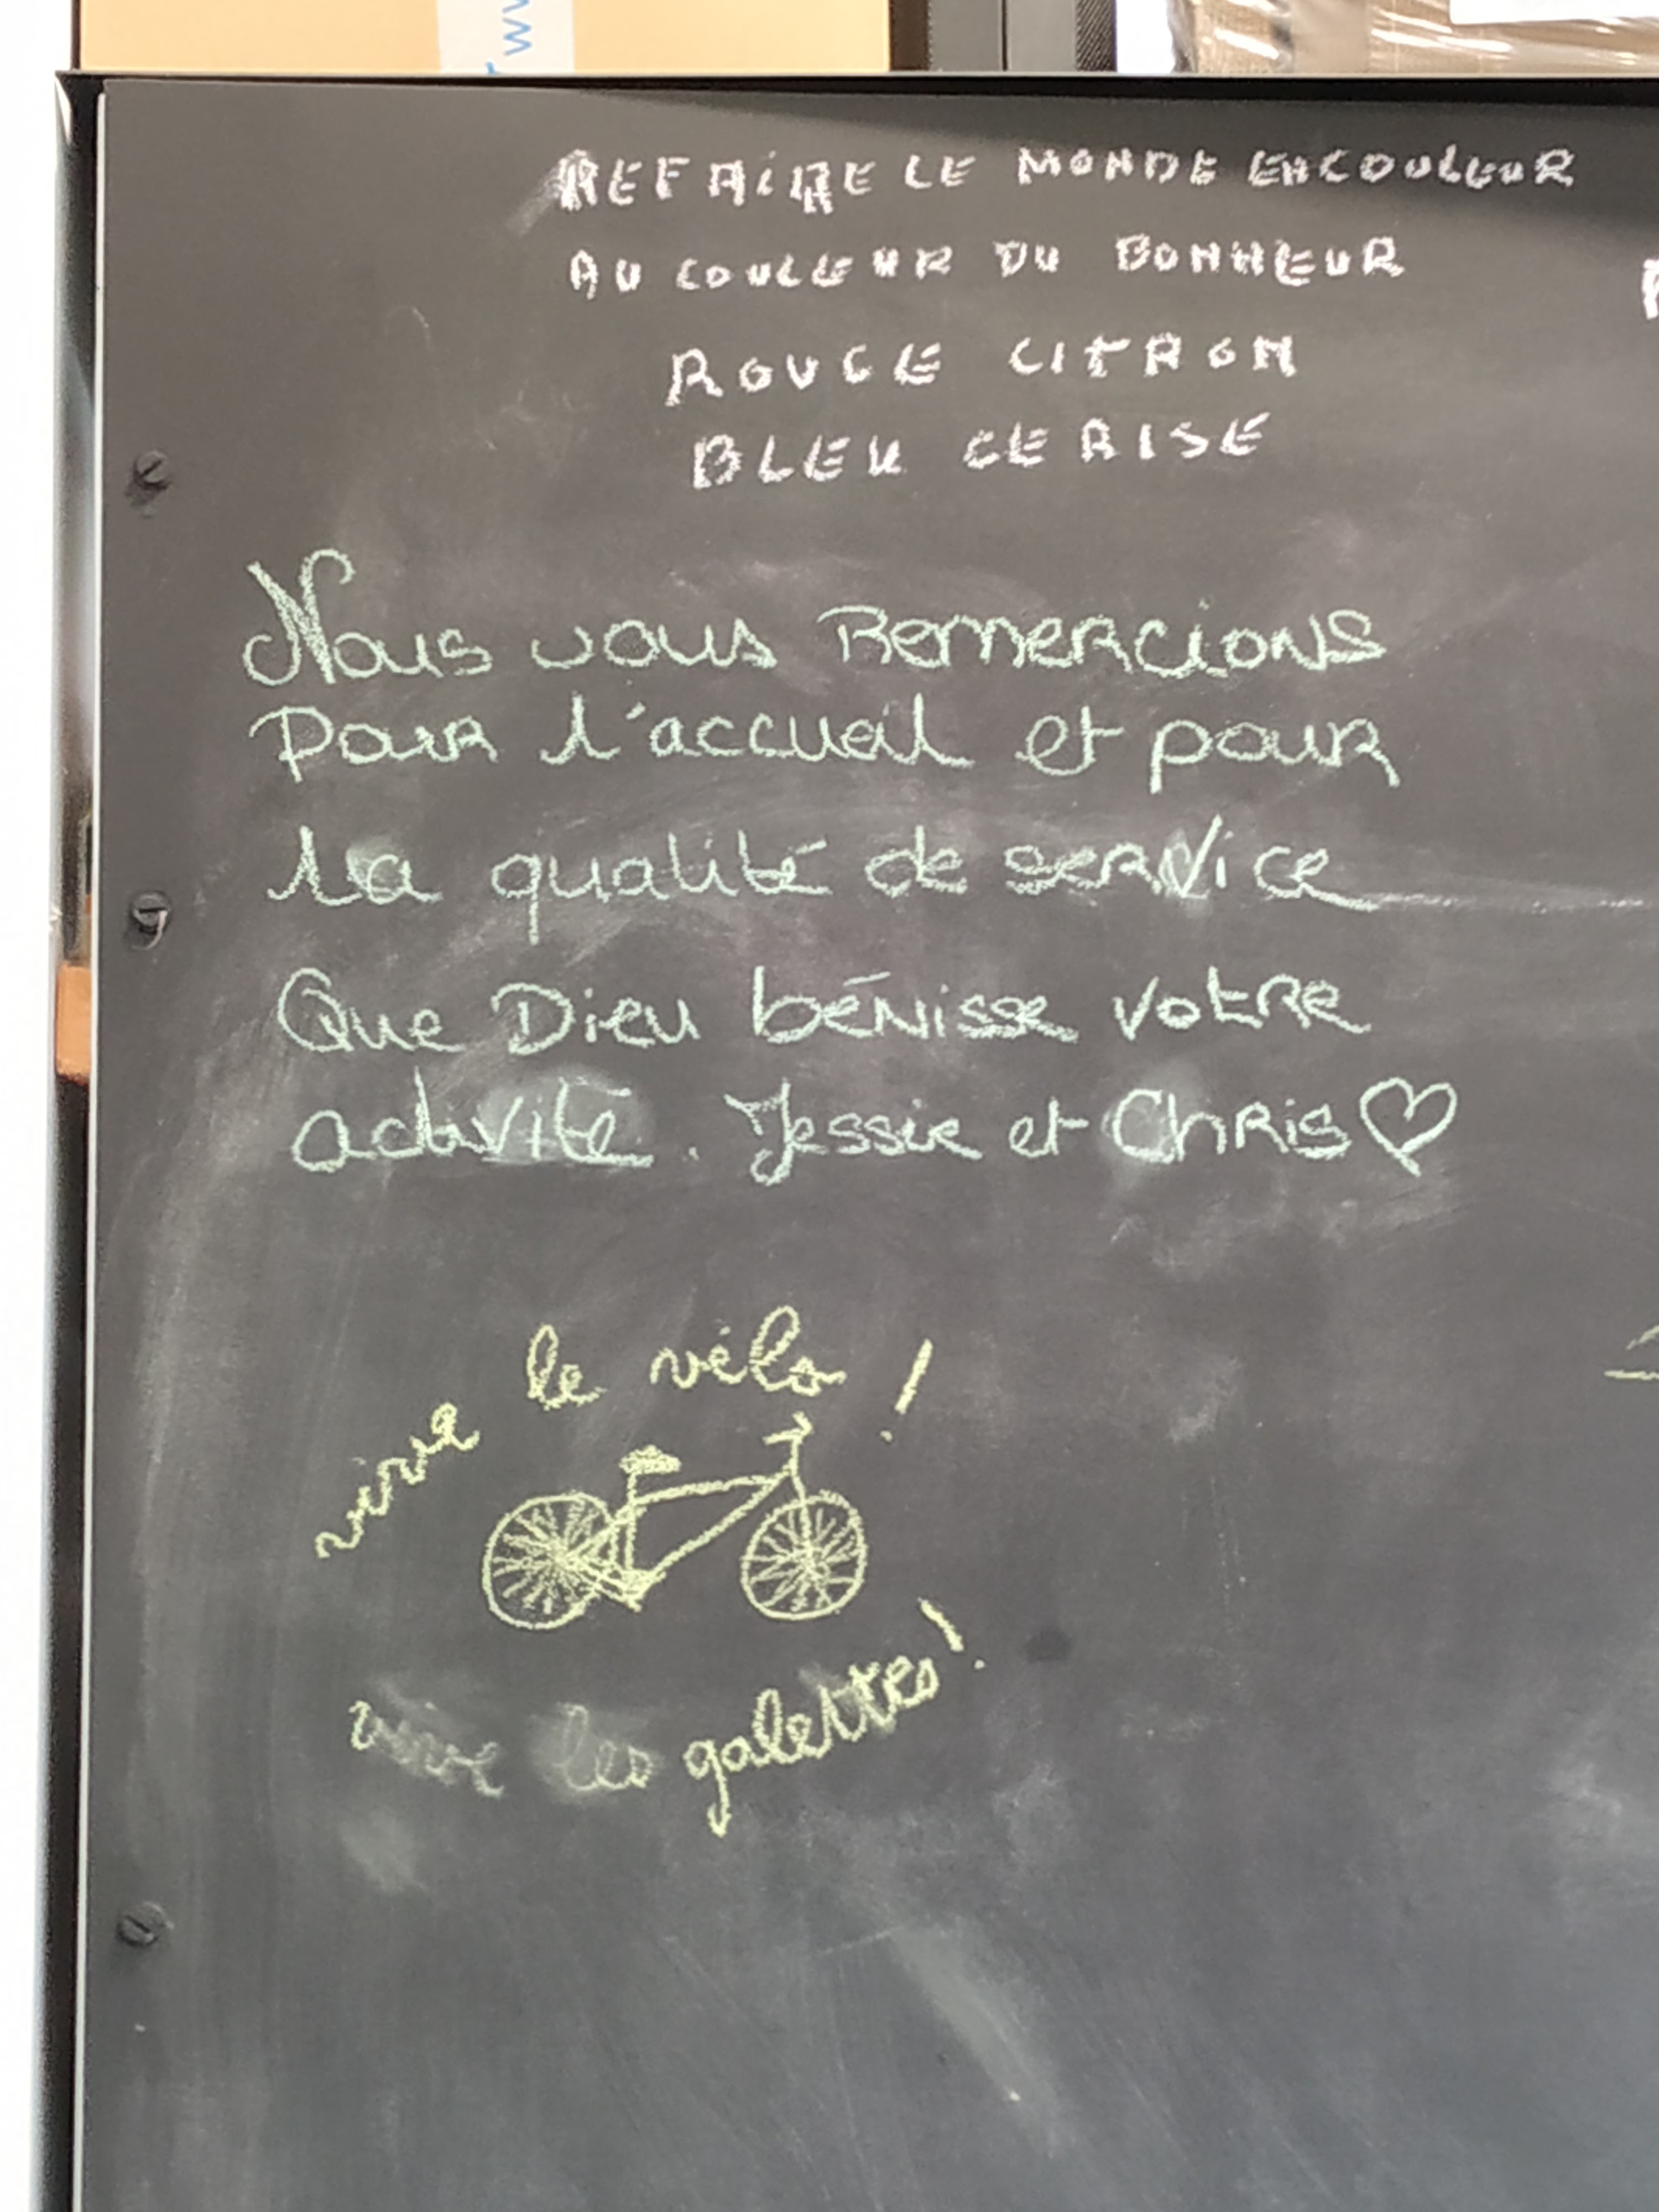 REFAiRE LE MONDE EN COULEUR
AU COULEUR DU BONHEUR
ROUGE CITRON
BLEU CERISE
Nous vous Remercions
Pour l'accueil et pour
la qualité de service
Que Dieu bénisse votre
activité. Jessie et Chris ♡
vive le vélo !
vive les galettes !